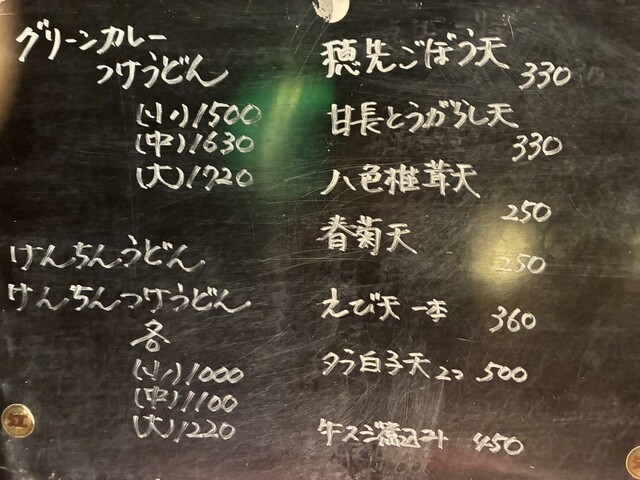 グリーンカレー
つけうどん
(小)1500
(中)1630
(大)1720
けんちんうどん
けんちんつけうどん
各
(小)1000
(中)1100
(大)1220
穂先ごぼう天
330
甘長とうがらし天
330
八色椎茸天
250
春菊天
250
えび天 一本 360
タラ白子天 2コ 500
牛スジ煮込 450